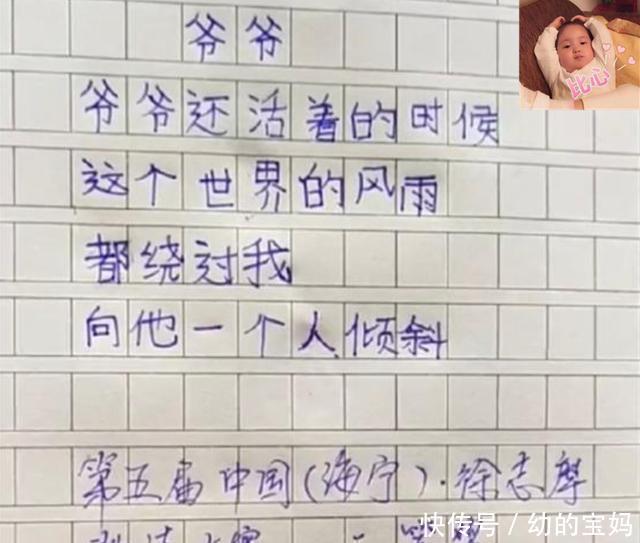 爷爷
比心
爷爷还活着的时候
这个世界的风雨
都绕过我
向他一个人倾斜
第五届中国(海宁)·徐志摩
快传号/幼的宝妈